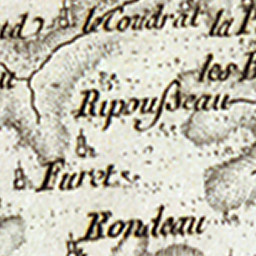 le Coudrat la
les
Ripousseau
Furet
Rondeau